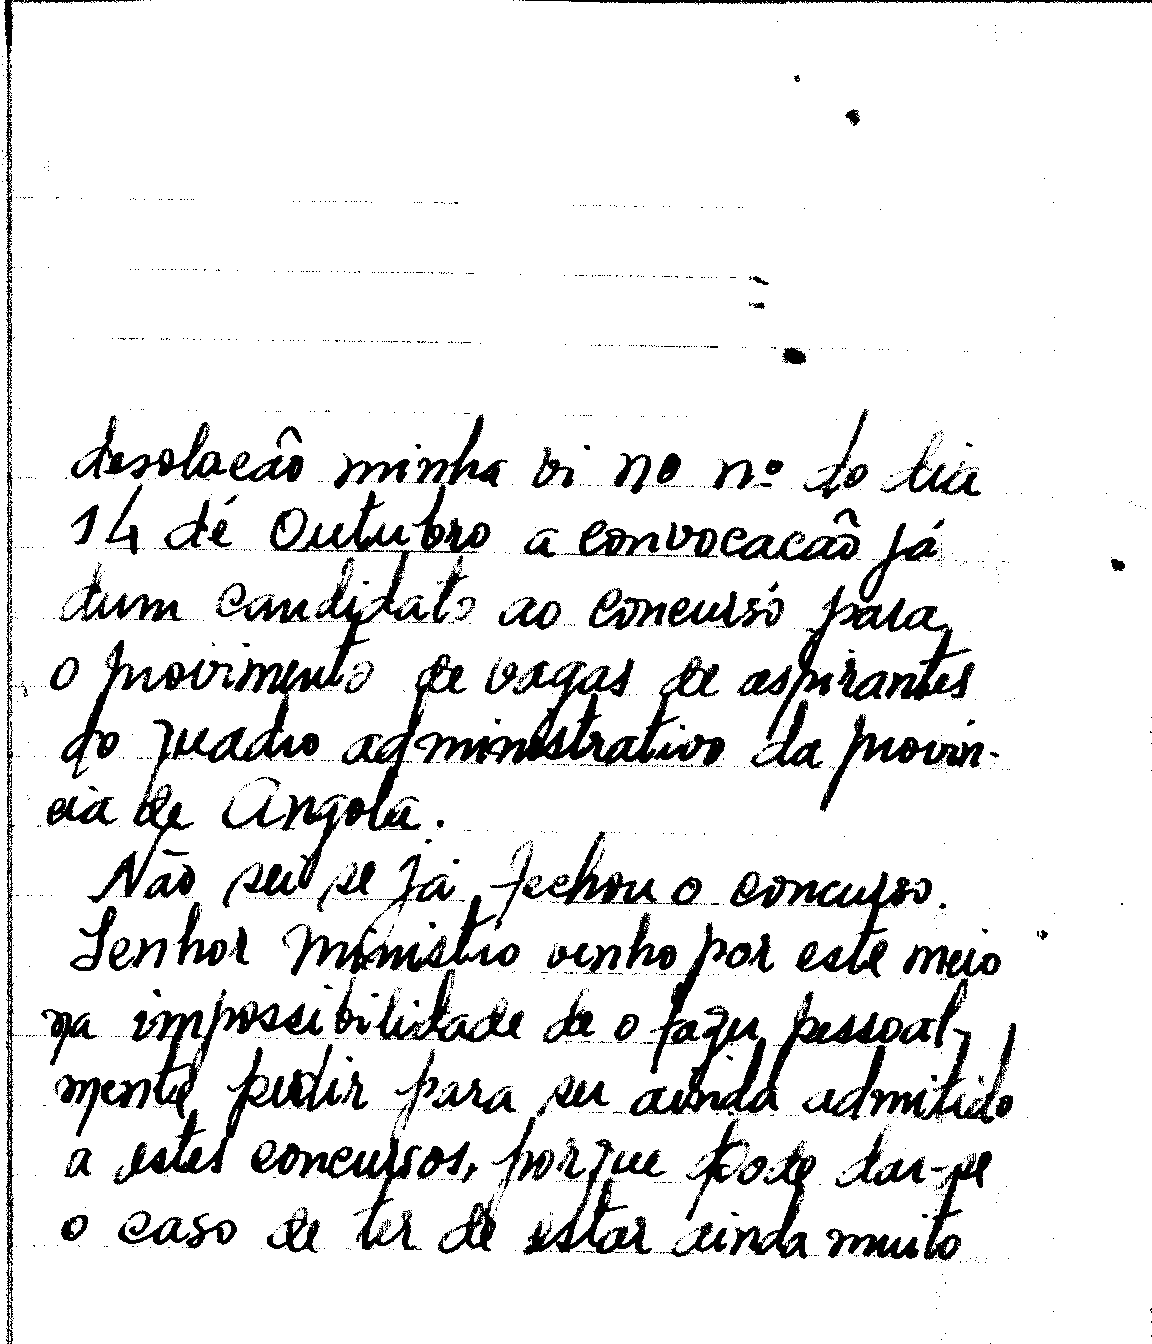 desolacâo minha vi no nº do dia
14 dé Outubro a convocacâo já
dum candidato ao concurso para
o provimento de vagas de aspirantes
do quadro administrativo da provin-
cia de Angola.
Não sei se já fechou o concurso.
Senhor Ministro venho por este meio
na impossibilidade de o fazer pessoal-
mente pedir para ser ainda admitido
a estes concursos, porque pode dar-se
o caso de ter de estar ainda muito